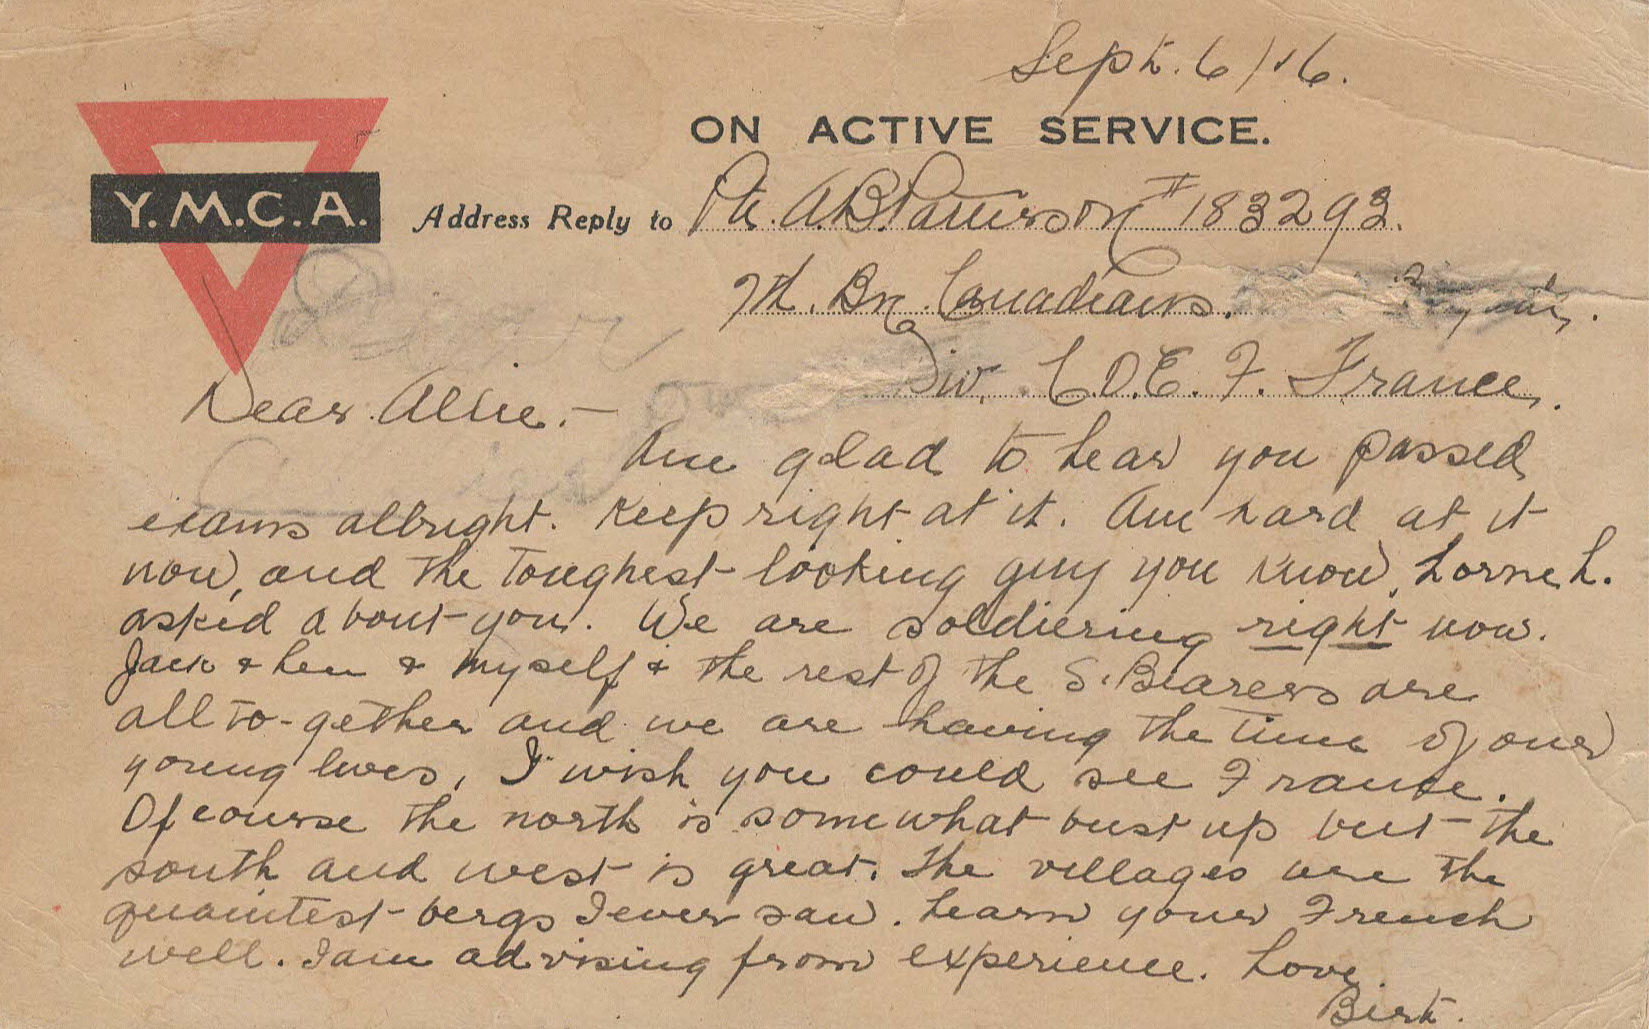 Sept. 6/16.
ON ACTIVE SERVICE.
Y.M.C.A.
Address Reply to Pte. A.B. Patterson #183293.
Bn. Canadians.
Div. France.
Dear Allie.—
Am glad to hear you passed
exams allright. Keep right at it. Am hard at it
now, and the toughest looking guy you know, Lorne L.
asked about you. We are soldiering right now.
Jack & Len & myself & the rest of the S. Bearers are
all to-gether and we are having the time of our
young lives, I wish you could see France.
Of course the north is somewhat bust up but the
south and west is great. The villages are the
quaintest bergs I ever saw. Learn your French
well. I am advising from experience. Love
Bert.